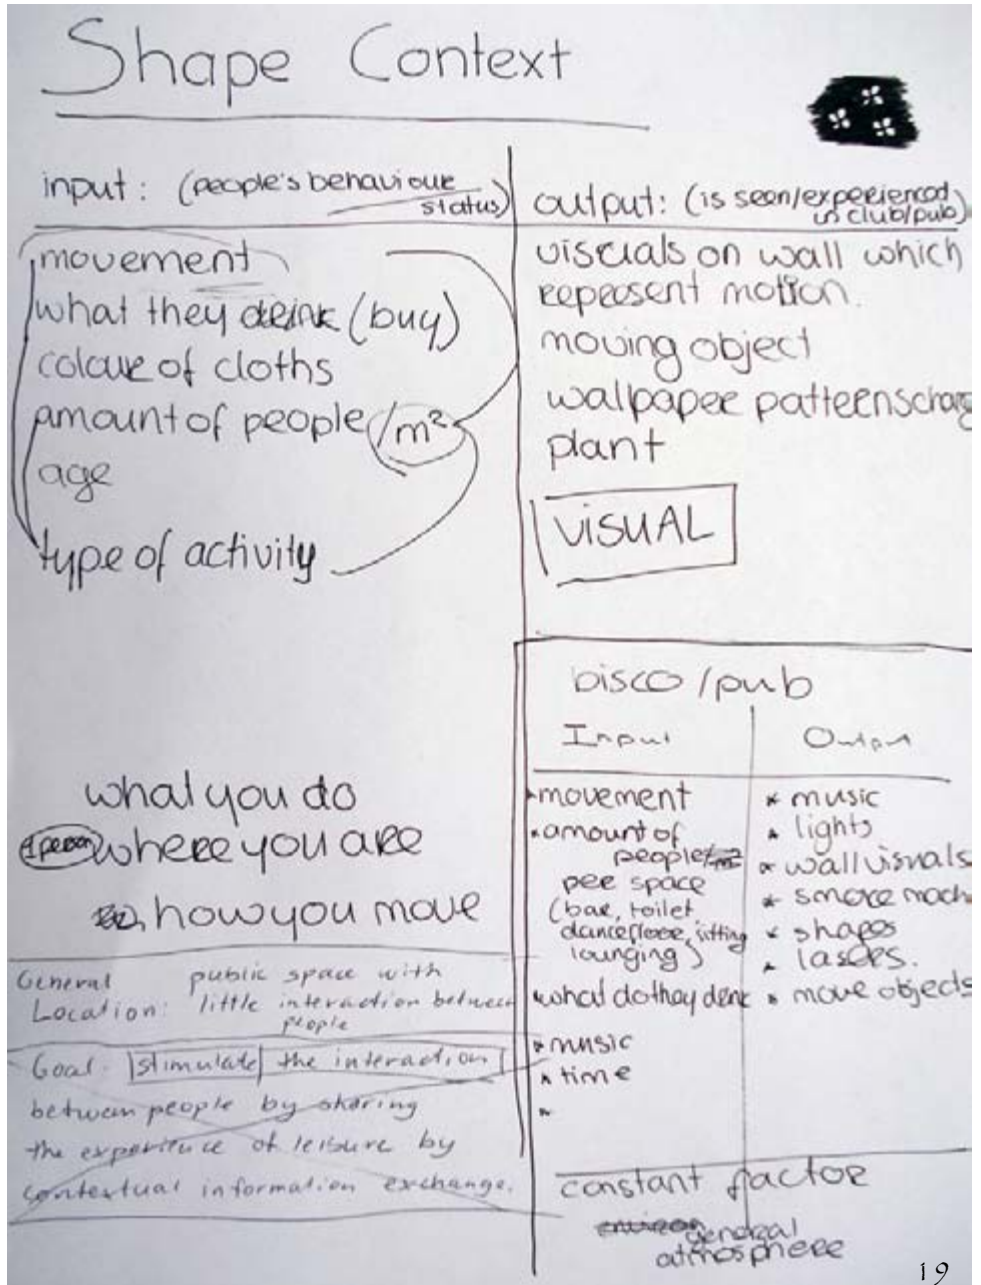 Shape Context
input: (people's behaviour
status)
movement
what they drink (buy)
colour of cloths
amount of people /m²
age
type of activity
output: (is seen/experienced
in club/pub)
visuals on wall which
represent motion.
moving object
wallpaper patterns chang
plant
VISUAL
what you do
1 person where you are
how you move
General public space with
Location: little interaction between
people
Goal: stimulate the interaction
between people by sharing
the experience of leisure by
contextual information exchange.
Disco/pub
Input
movement
amount of
people/m²
per space
(bar, toilet
dancefloor, sitting
lounging)
what do they drink
music
time
Output
music
lights
wall visuals
smoke mach
shapes
lasers.
move objects
constant factor
general
atmosphere
19